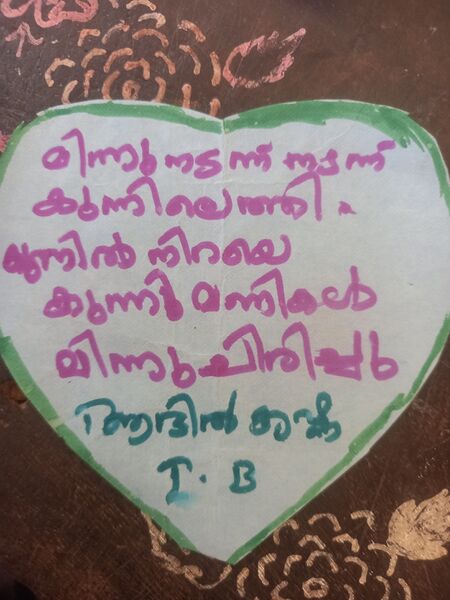 മിന്നു നടന്ന് നടന്ന്
കുന്നിലെത്തി.
കുന്നിൽ നിറയെ
കുന്നി മണികൾ
മിന്നു ചിരിച്ചു
I. B